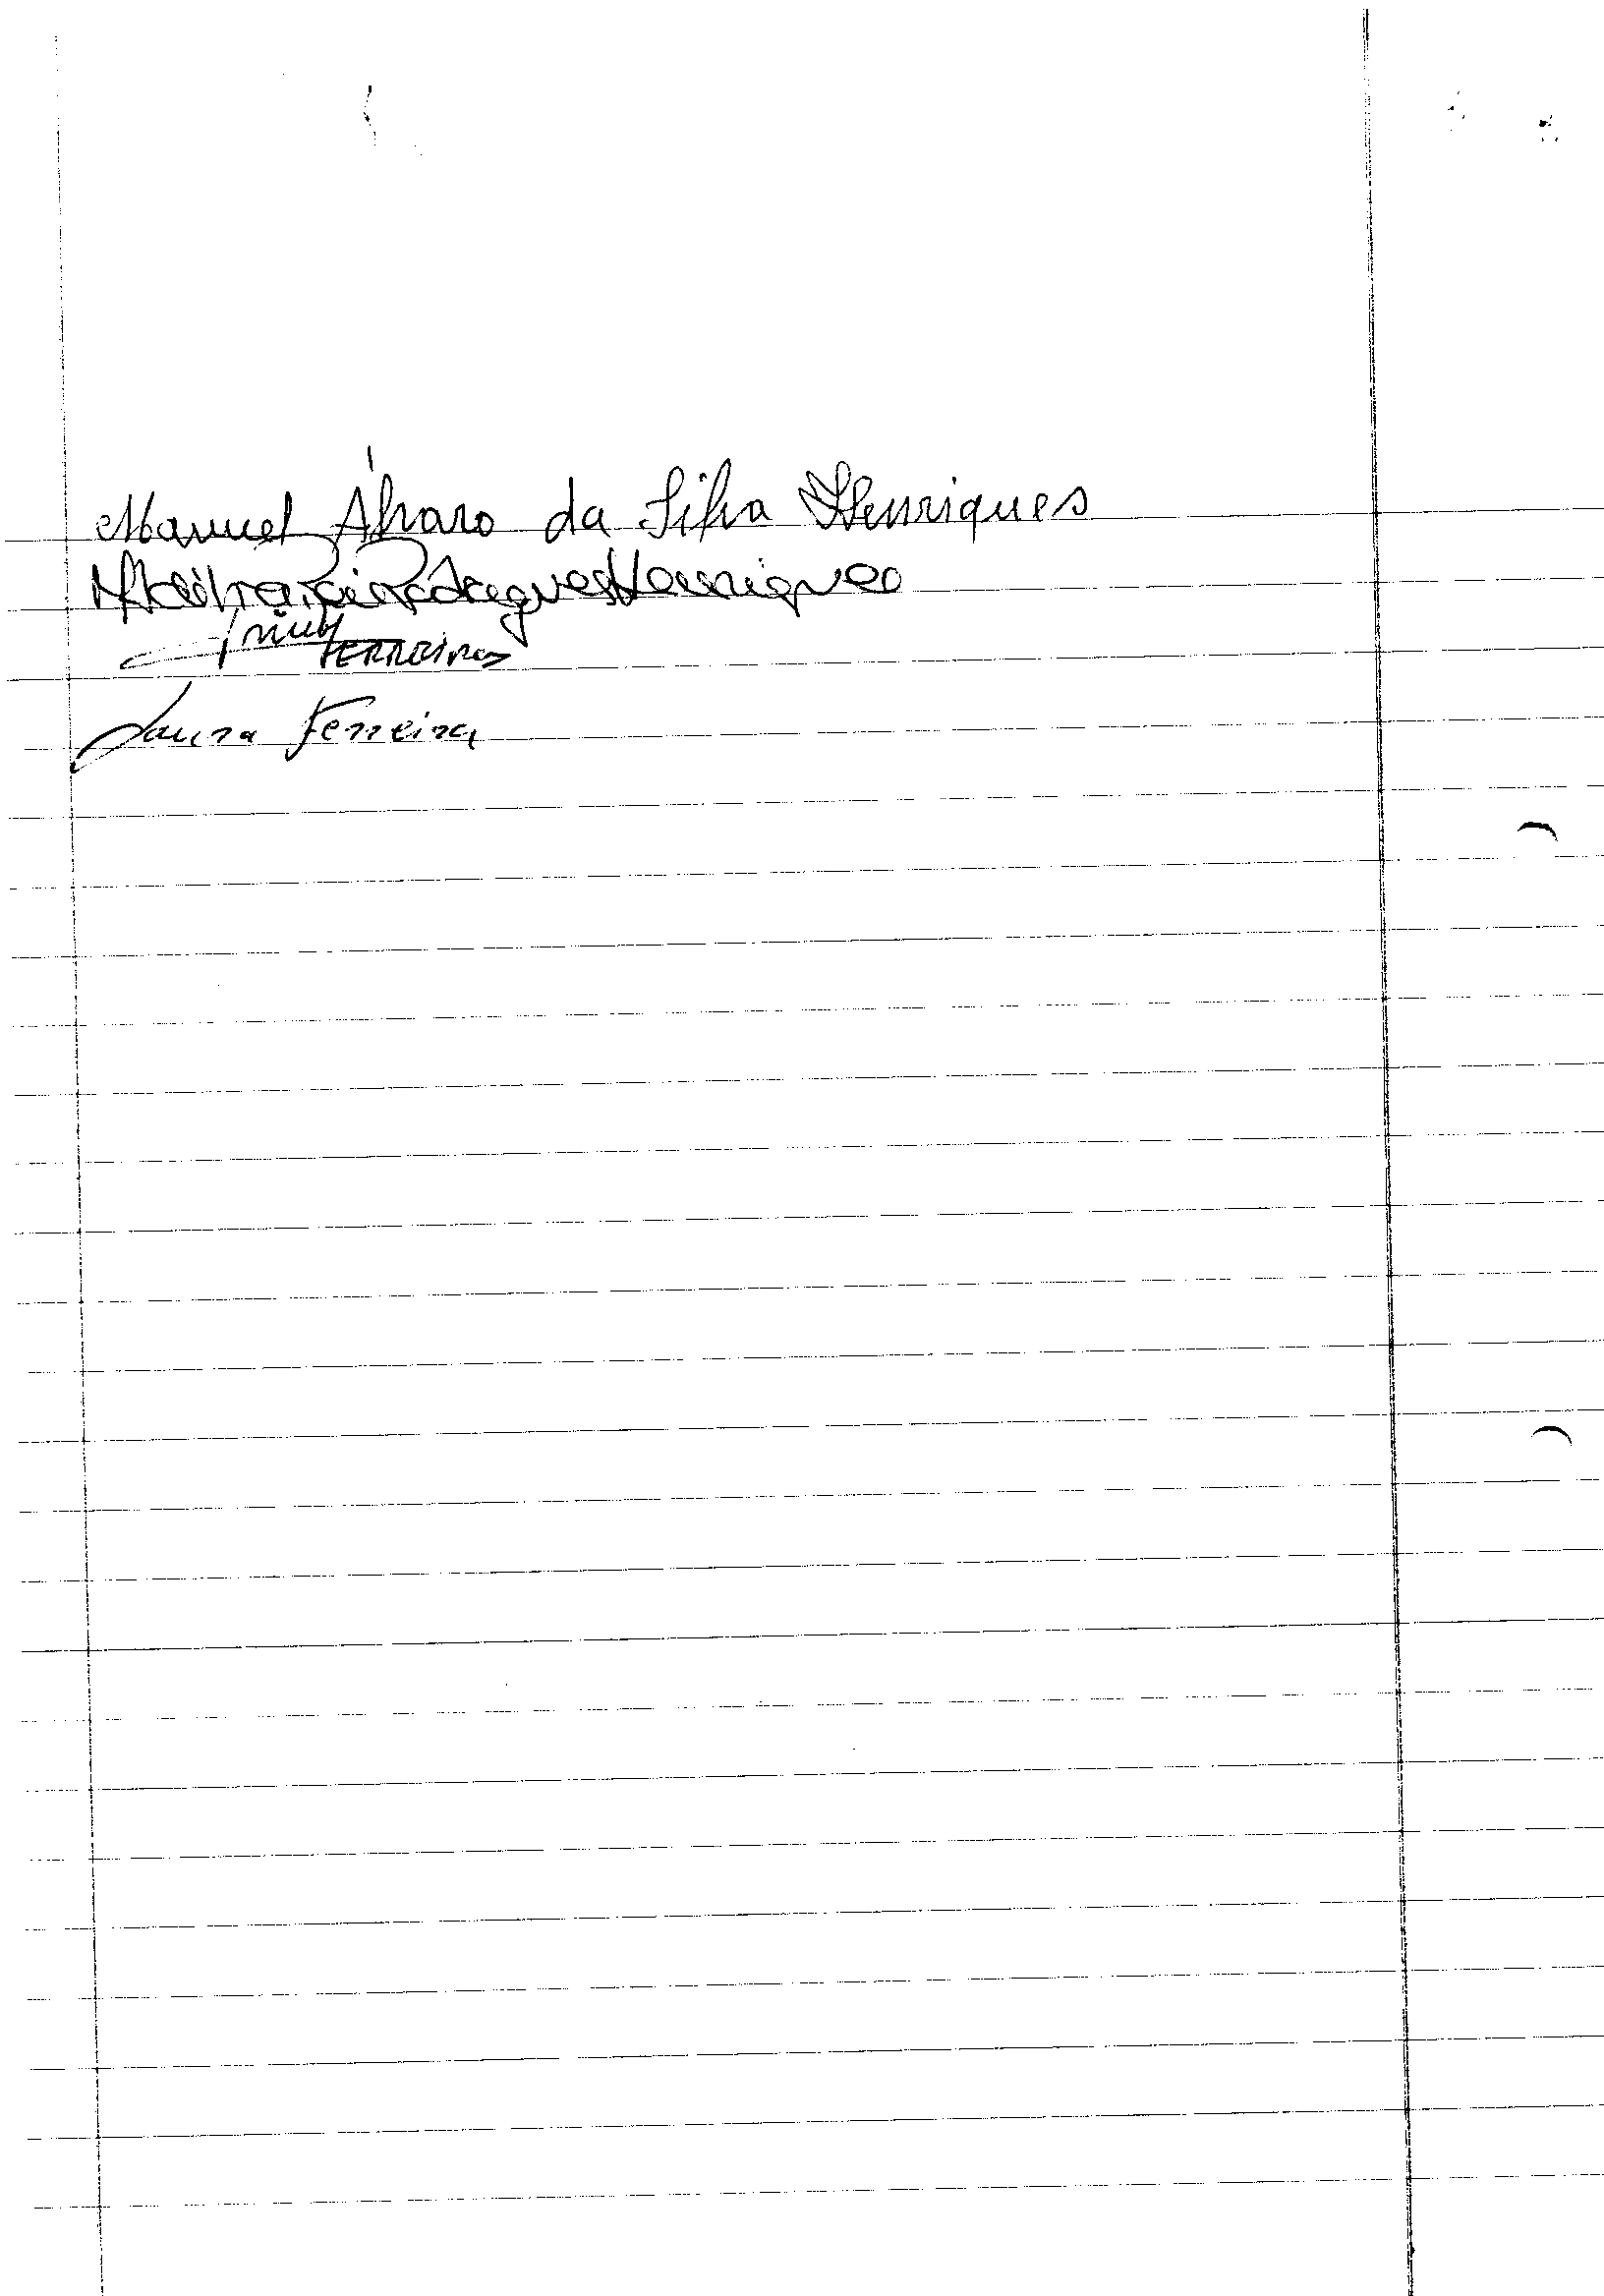 Manuel Álvaro da Silva Henriques
Rodrigues Henriques
FERREIRA
Laura Ferreira